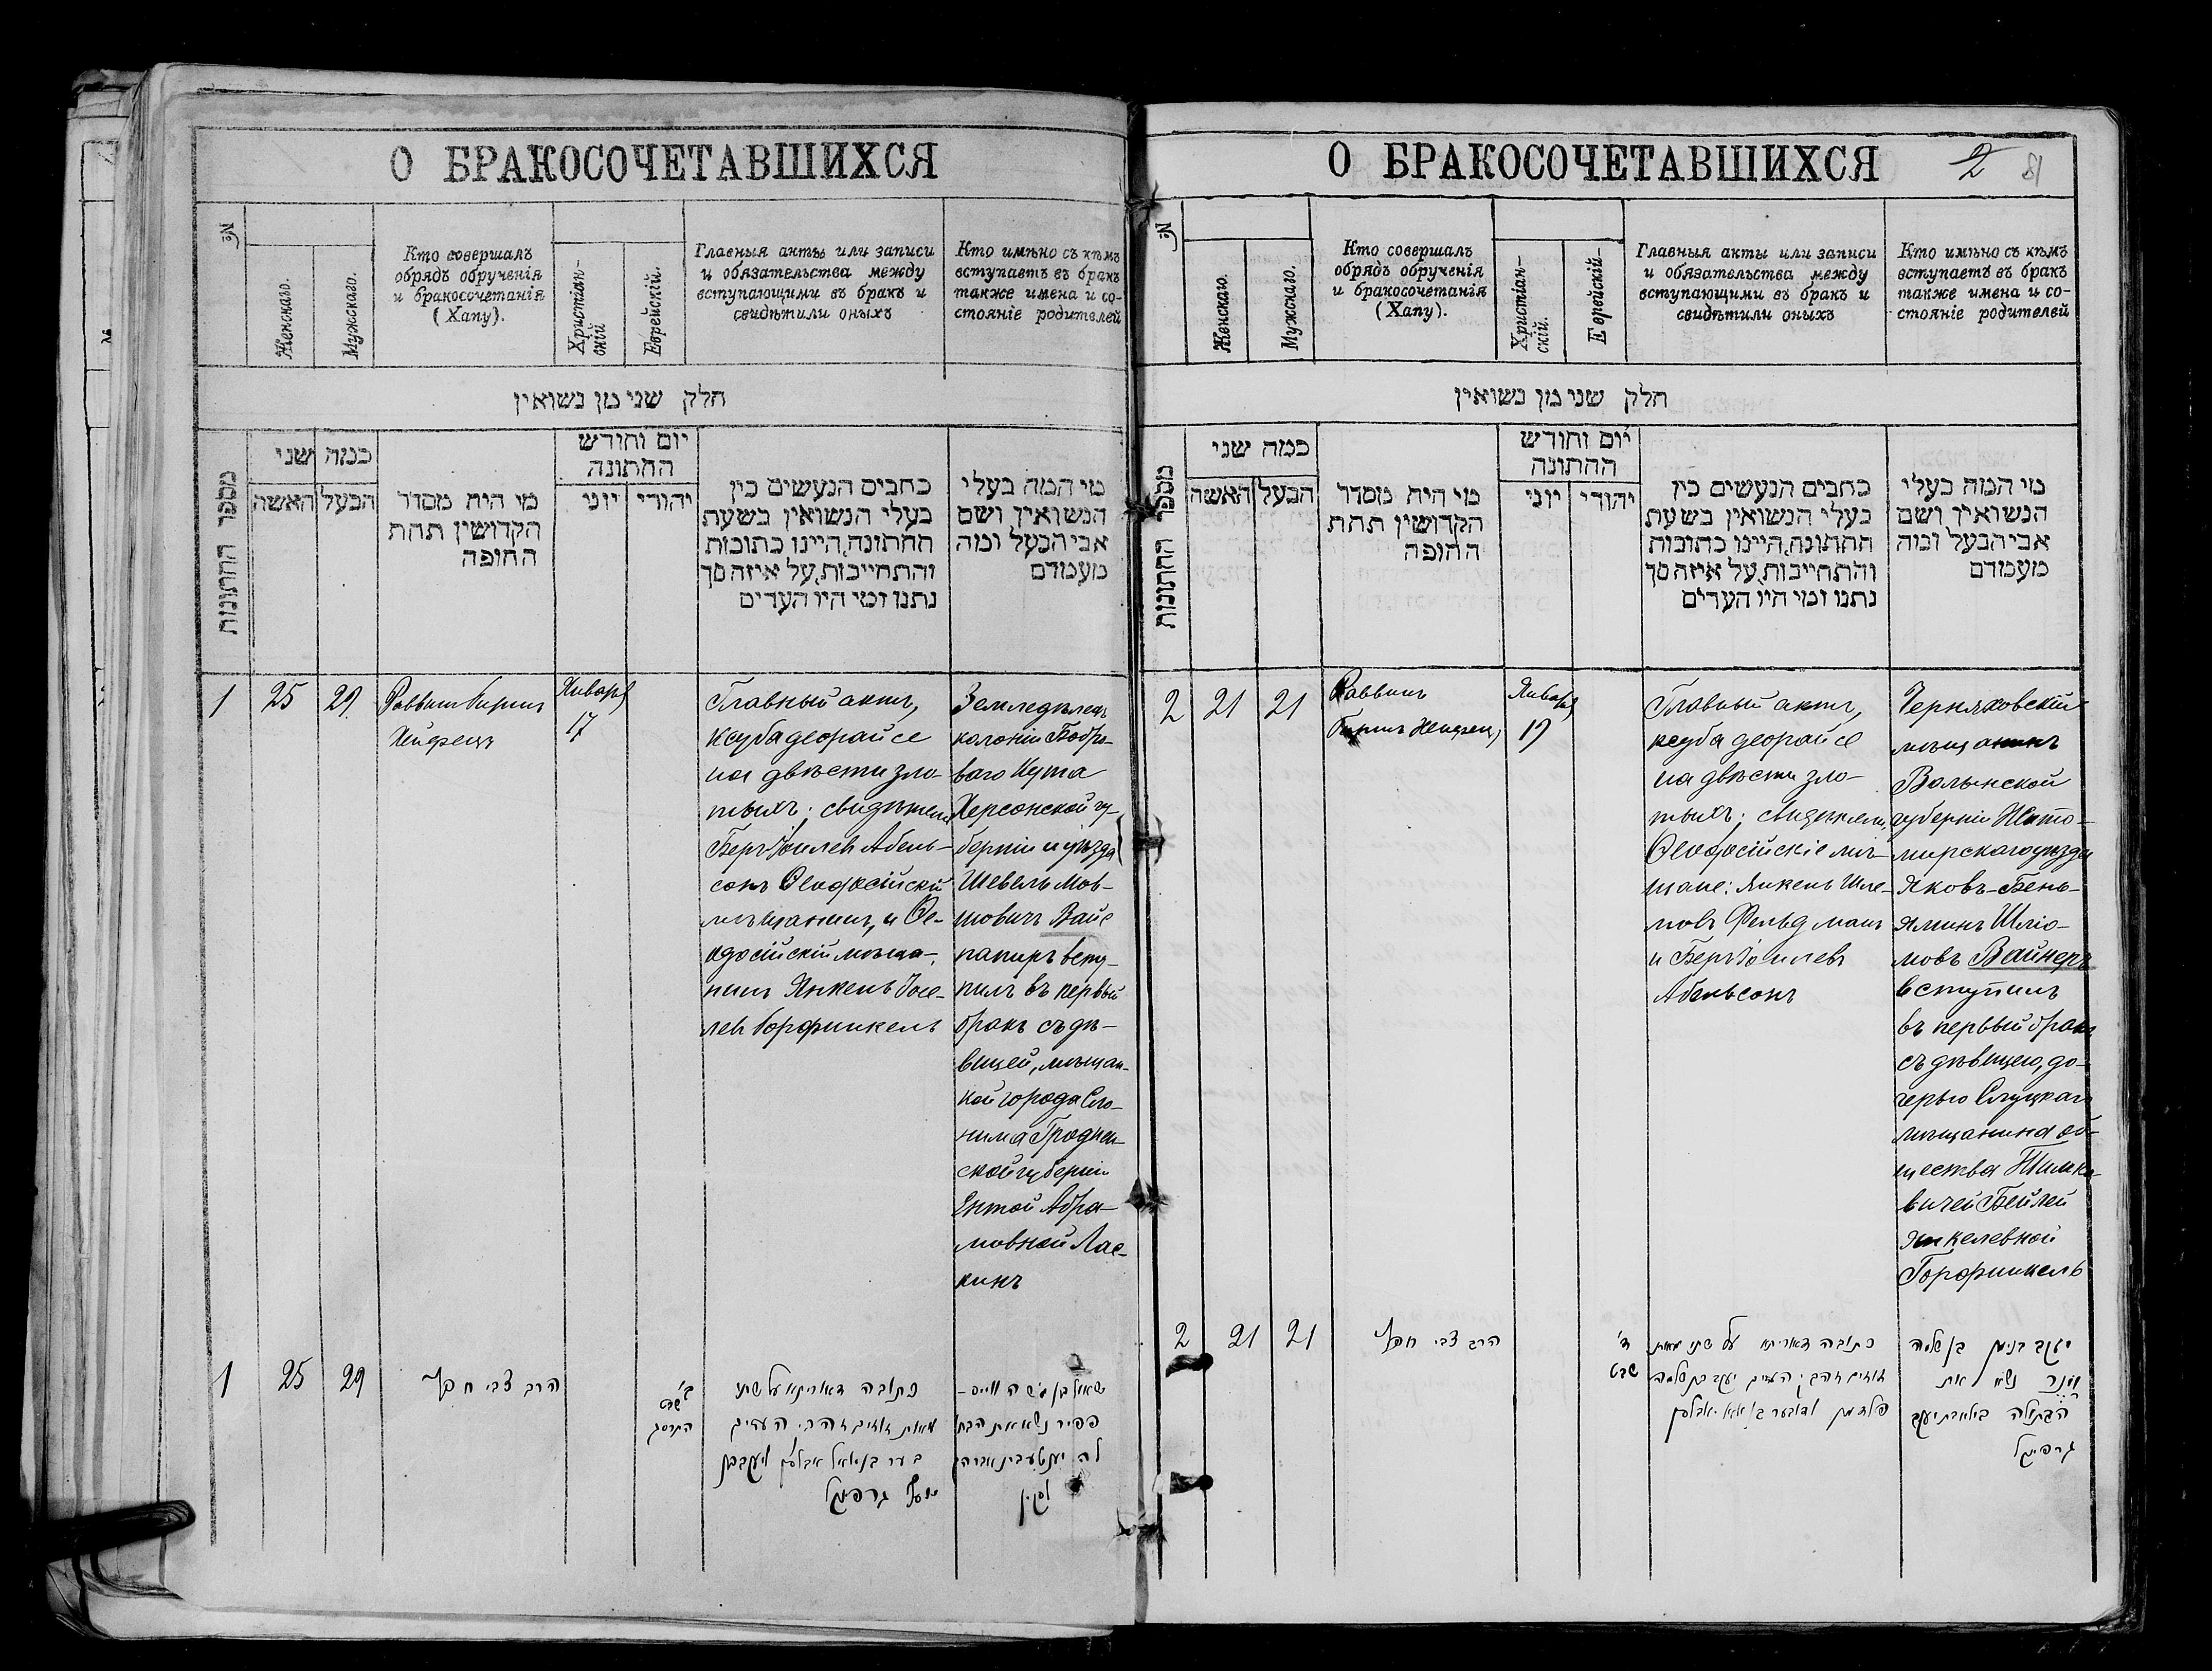 О БРАКОСОЧЕТАВШИХСЯ
№
Женскаго.
Мужскаго.
Кто совершалъ
обрядъ обрученія
и бракосочетанія
(Хапу).
Христіан-
скій
Еврейскій.
Главныя акты или записи
и обязательства между
вступающими въ бракъ и
свидѣтили оныхъ
Кто имѣно съ кѣмъ
вступаетъ въ бракъ
также имена и со-
стояніе родителей
חלק שני מן נשואין
מספר החתונות
כמה שני
האשה
הבעל
מי הית מסדר
הקדושין תחת
החופה
יום וחודש
החתונה
יוני
יהודי
כתבים הנעשים בין
בעלי הנשואין בשעת
החתונה, היינו כתובות
והתחייבות, על איזה סך
נתנו ומי היו העדים
מי המה בעלי
הנשואין ושם
אבי הבעל ומה
מעמדם
1
25
29.
Раввинъ Биринъ
Хейфецъ
Января
17
Главный актъ,
ксуба деорайсе
на двѣсти зло-
тыхъ; свидѣтели
Беръ Іоилевъ Абель-
сонъ Ѳеодосійскій
мѣщанинъ, и Ѳе-
одосійскій мѣща-
нинъ Янкель Іосе-
левъ Горфинкель
Земледѣлецъ
колоніи Бобро-
ваго Кута
Херсонской гу-
берніи и уѣзда
Шевель Мов-
шовичъ Вайс
папиръ всту-
пилъ въ первый
бракъ съ дѣ-
вицей, мѣщан-
кой города Сло-
нима Гроднен-
ской губерніи
Ентой Абра-
мовной Лас-
кинъ
1
25
29
הרב צבי חפץ
ב'
שבט
התרסג
כתובה דאוריתא על שתי
מאות זוזים זהב; העדים
בער בן יואל אבלסן ויעקב בן
יוסף גרפינקל
שאול בן משה ווייס-
פפיר נשא את הבתו
לה יענטע בת אברהם
לסקין
О БРАКОСОЧЕТАВШИХСЯ
2
81
№
Женскаго.
Мужскаго.
Кто совершалъ
обрядъ обрученія
и бракосочетанія
(Хапу).
Христіан-
скій.
Еврейскій-
Главныя акты или записи
и обязательства между
вступающими въ бракъ и
свидѣтили оныхъ
Кто имѣно съ кѣмъ
вступаетъ въ бракъ
также имена и со-
стояніе родителей
חלק שני מן נשואין
מספר החתונות
כמה שני
האשה
הבעל
מי הית מסדר
הקדושין תחת
החופה
יום וחודש
החתונה
יוני
יהודי
כתבים הנעשים בין
בעלי הנשואין בשעת
החתונה, היינו כתובות
והתחייבות, על איזה סך
נתנו ומי היו העדים
מי המה בעלי
הנשואין ושם
אבי הבעל ומה
מעמדם
2
21
21
Раввинъ
Биринъ Хейфецъ
Января
17
Главный актъ,
ксуба деорайсе
на двѣсти зло-
тыхъ; свидѣтели,
Ѳеодосійскіе мѣ-
щане: Янкель Шле-
мовъ Фельдманъ
и Беръ Іоилевъ
Абельсонъ
Черняховскій
мѣщанинъ
Волынской
губерніи Жито-
мирскаго уѣзда
Яковъ-Бень-
яминъ Шліо-
мовъ Вайнеръ
вступилъ
въ первый бракъ
съ дѣвицею, до-
черью Слуцкаго
мѣщанина об-
щества Шимко-
вичей Бейлей
Янкелевной
Горфинкель
2
21
21
הרב צבי חפץ
ד'
שבט
כתובה דאוריתא על שתי מאות
זוזים זהב; העדים יעקב בן שלמה
פלדמן ובער בן יואל אבלסן
יעקב בנימן בן שלמה
וינר נשא את
הבתולה ביילא בת יעקב
גרפינקל